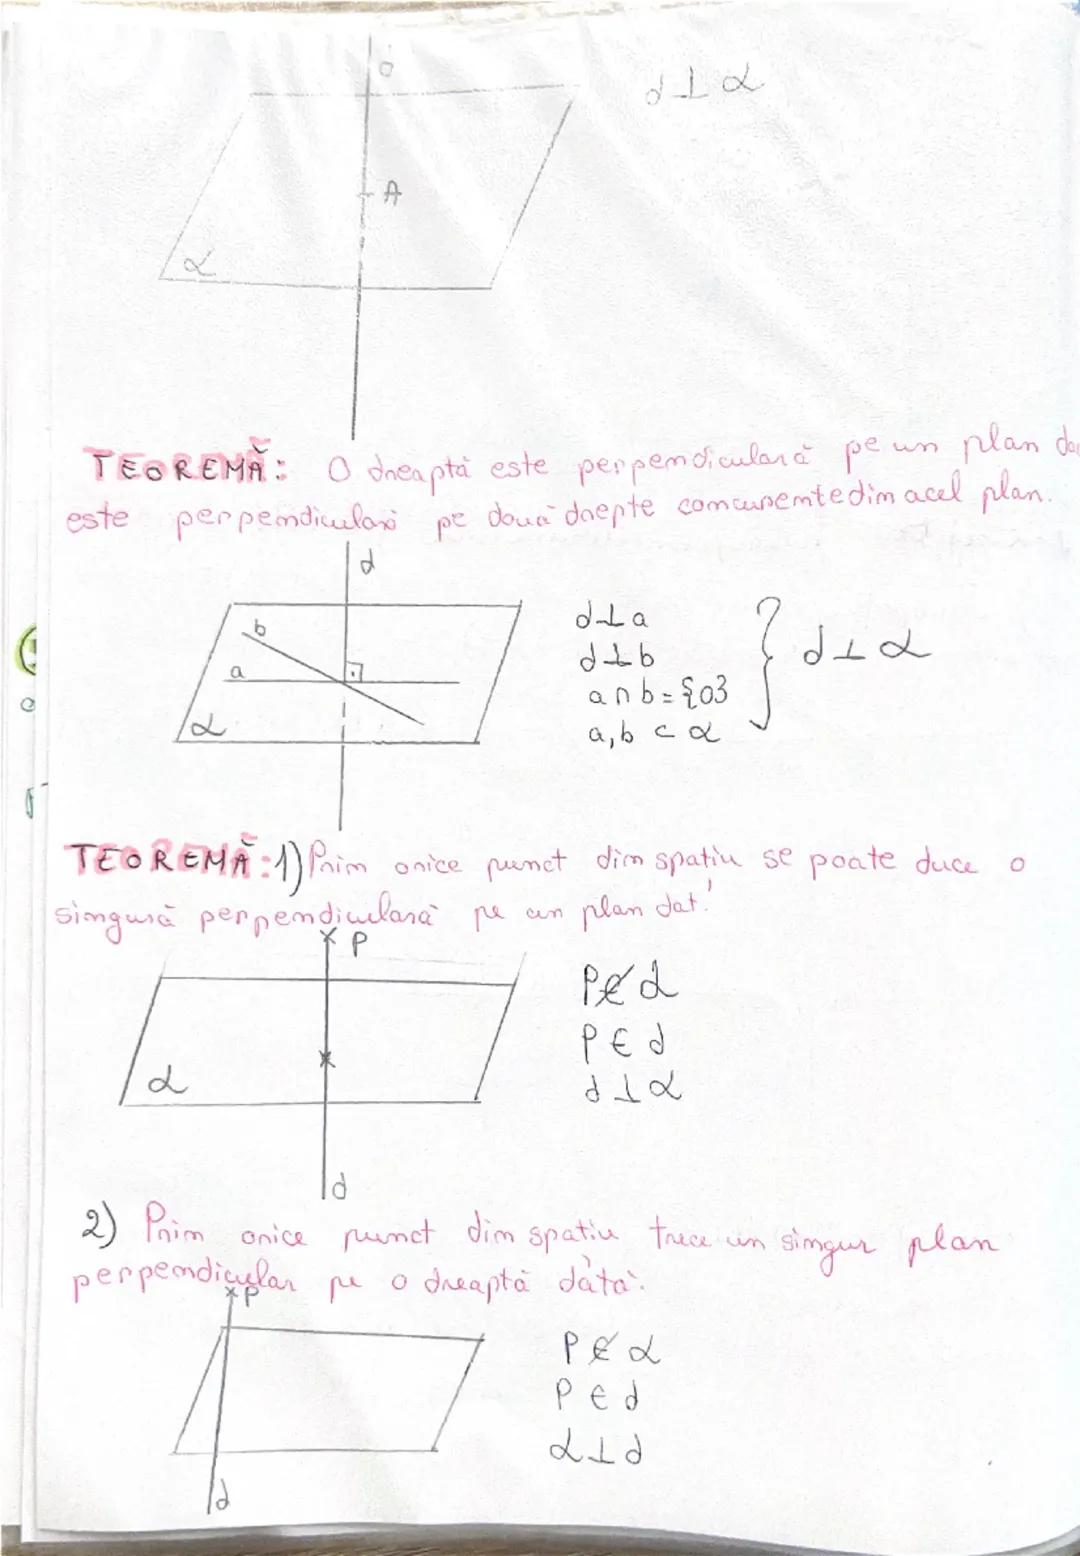 d
d ⊥ α
A
α
TEOREMĂ: O dreaptă este perpendiculară pe un plan da
este perpendiculară pe două drepte concurente din acel plan.
d
b
a
α
d ⊥ a
d ⊥ b
a ∩ b = {O}
a, b ⊂ α
d ⊥ α
TEOREMĂ: 1) Prin orice punct din spatiu se poate duce o
singură perpendiculară pe un plan dat!
P
α
d
P ∉ α
P ∈ d
d ⊥ α
2) Prin orice punct din spatiu trece un singur plan
perpendicular pe o dreaptă dată.
P
d
P ∉ α
P ∈ d
α ⊥ d